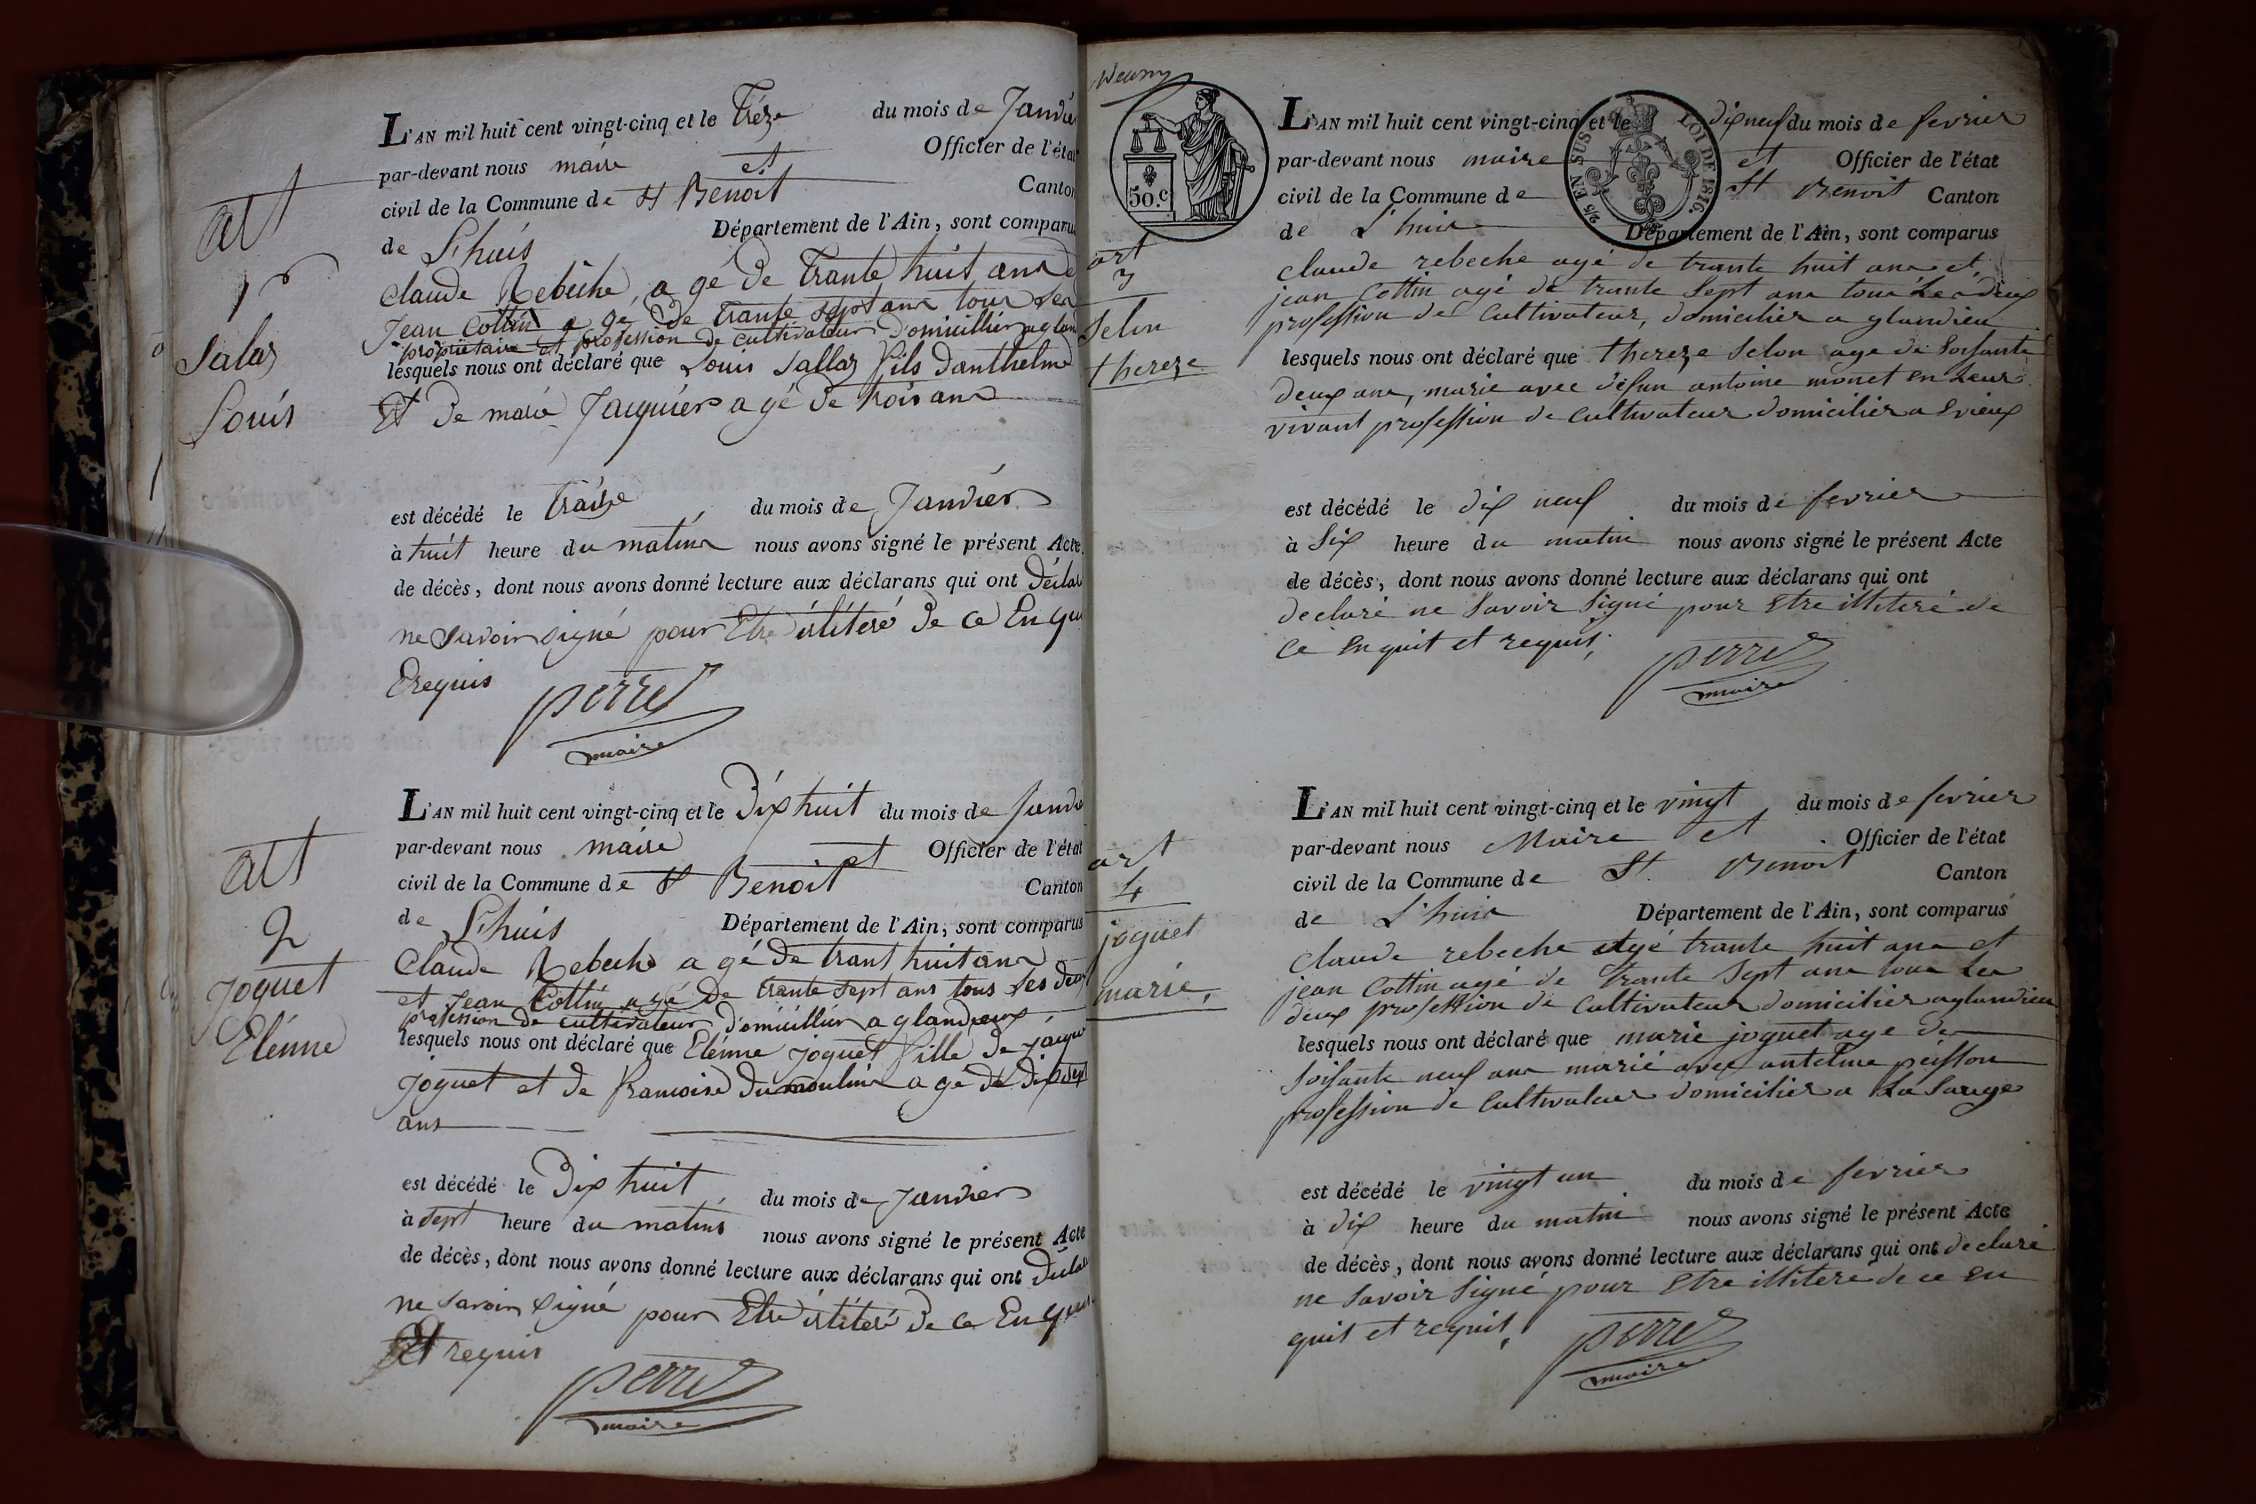 L'AN mil huit cent vingt-cinq et le Tréze du mois de Janvié
par-devant nous maire et Officier de l'état
civil de la Commune de St Benoit Canton
de L'huis Département de l'Ain, sont comparus
Claude Rebeche, a gé de trante huit ans
Jean Cottin a gé de trante sept ans tous les
propriétaire et profession de cultivateur domicillier a gland
lesquels nous ont déclaré que Louis Sallaz fils danthelme
Et de marie Jacquier a gé de trois ans
est décédé le traize du mois de Janvier
à huit heure du matin nous avons signé le présent Acte
de décès, dont nous avons donné lecture aux déclarans qui ont déclar
ne savoir signé pour Etre illiteré De ce Enqui
Erequis
perret
maire
art
1er
Salaz
Louis
L'AN mil huit cent vingt-cinq et le Dix huit du mois de Janvié
par-devant nous maire et Officier de l'état
civil de la Commune de St Benoit Canton
de L'huis Département de l'Ain, sont comparus
Claude Rebeche a gé De trant huit ans
et Jean Cottin agé De trante sept ans tous les deux
profession De cultivateur Domicillier a glandieux
lesquels nous ont déclaré que Elénne joguet fille De jacque
joguet et de francoise Dumoulin a gé de Dix sept
ans
est décédé le Dix huit du mois de Janvier
à sept heure du matins nous avons signé le présent Acte
de décès, dont nous avons donné lecture aux déclarans qui ont Déclar
ne savoir signé pour Etre illiteré De ce Enquis
Et requis
perret
maire
art
2
joguet
Elénne
50.c
2/5 EN SUS
LOI DE 1816.
L'AN mil huit cent vingt-cinq et le dix neuf du mois de fevrier
par-devant nous maire et Officier de l'état
civil de la Commune de St Benoit Canton
de L'huis Département de l'Ain, sont comparus
claude rebeche agé de trante huit ans et
jean Cottin agé de trante sept ans tous Les deux
profession de Cultivateur, domicilier a glandieu
lesquels nous ont déclaré que thereze Selon age de Soisante
deux ans, marie avec defun antoine monet en Leur
vivant profession de Cultivateur domicilier a Evieux
est décédé le dix neuf du mois de fevrier
à Six heure du matin nous avons signé le présent Acte
de décès, dont nous avons donné lecture aux déclarans qui ont
declaré ne Savoir Signé pour Etre illiteré de
ce Enquit et requit,
perret
maire
art
3
Selon
thereze
L'AN mil huit cent vingt-cinq et le vingt du mois de fevrier
par-devant nous Maire et Officier de l'état
civil de la Commune de St Benoit Canton
de L'huis Département de l'Ain, sont comparus
claude rebeche agé trante huit ans et
jean Cottin agé de trante Sept ans tous Les
deux profession de Cultivateur domicilier aglandieu
lesquels nous ont déclaré que marie joguet age de
Soisante neuf ans marié avec antelme peisson
profession de Cultivateur domicilier a La Sauge
est décédé le vingt un du mois de fevrier
à dix heure du matin nous avons signé le présent Acte
de décès, dont nous avons donné lecture aux déclarans qui ont declaré
ne Savoir Signé pour Etre illiteré de ce en
quit et requit,
perret
maire
art
4
joguet
marie,